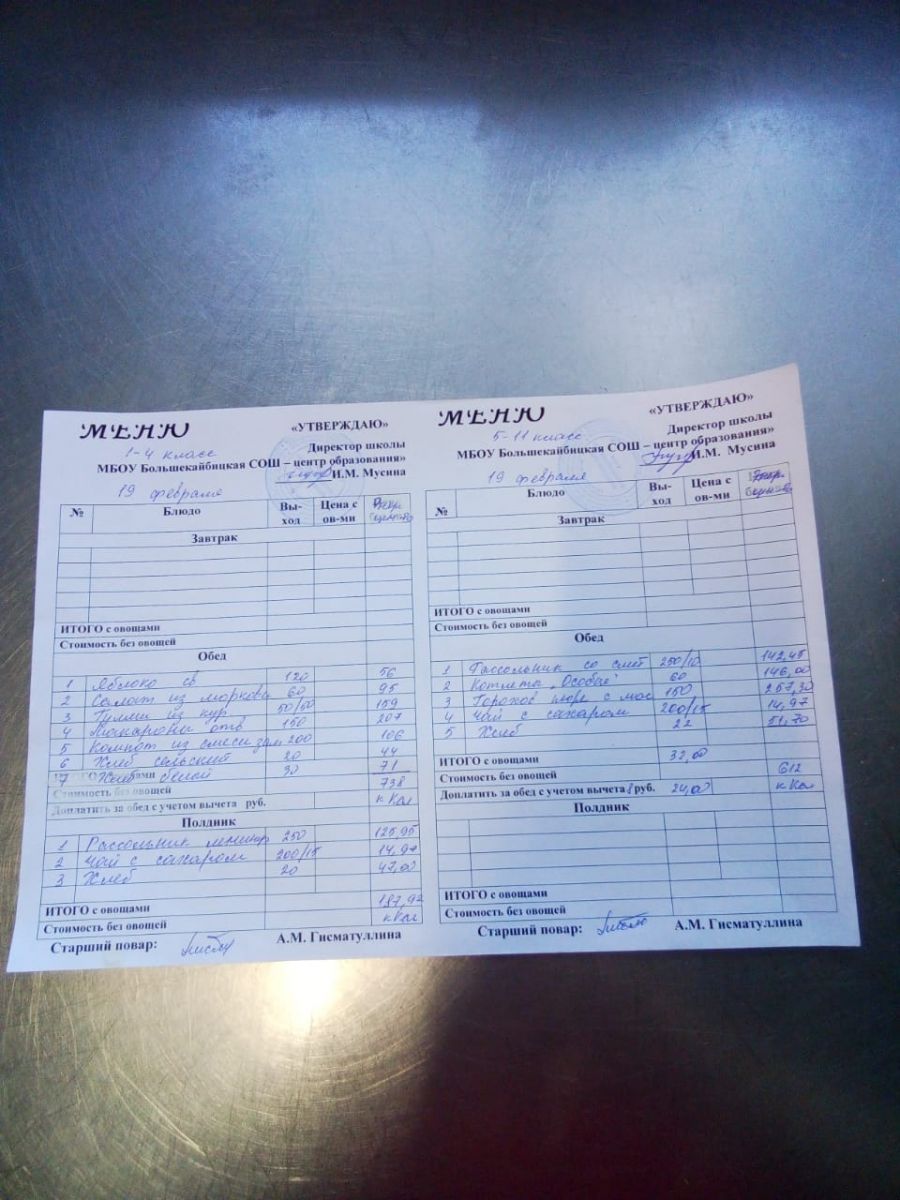 МЕНЮ
«УТВЕРЖДАЮ»
1-4 класс
Директор школы
МБОУ Большекайбицкая СОШ – центр образования»
И.М. Мусина
19 февраля
№ Блюдо Вы-ход Цена с ов-ми
Завтрак
ИТОГО с овощами
Стоимость без овощей
Обед
1 Яблоко св 120 56
2 Салат из моркови 60 95
3 Гуляш из кур 50/50 159
4 Макароны отв 150 207
5 Компот из смеси 200 106
6 Хлеб сельский 20 44
7 Хлеб белый 30 71
Стоимость без овощей 738
Доплатить за обед с учетом вычета руб. кКал
Полдник
1 Рассольник 250 125,95
2 Чай с сахаром 200/15 14,97
3 Хлеб 20 47,00
ИТОГО с овощами 187,92
Стоимость без овощей кКал
Старший повар: А.М. Гисматуллина
МЕНЮ
«УТВЕРЖДАЮ»
5-11 класс
Директор школы
МБОУ Большекайбицкая СОШ – центр образования»
И.М. Мусина
19 февраля
№ Блюдо Вы-ход Цена с ов-ми
Завтрак
ИТОГО с овощами
Стоимость без овощей
Обед
1 Рассольник со смет 250/10 142,45
2 Котлета „Особая" 60 146,00
3 Горохов пюре с мас 150 257,30
4 Чай с сахаром 200/15 14,97
5 Хлеб 22 51,70
ИТОГО с овощами 32,00
Стоимость без овощей 612
Доплатить за обед с учетом вычета 8 руб. 24,00 кКал
Полдник
ИТОГО с овощами
Стоимость без овощей
Старший повар: А.М. Гисматуллина